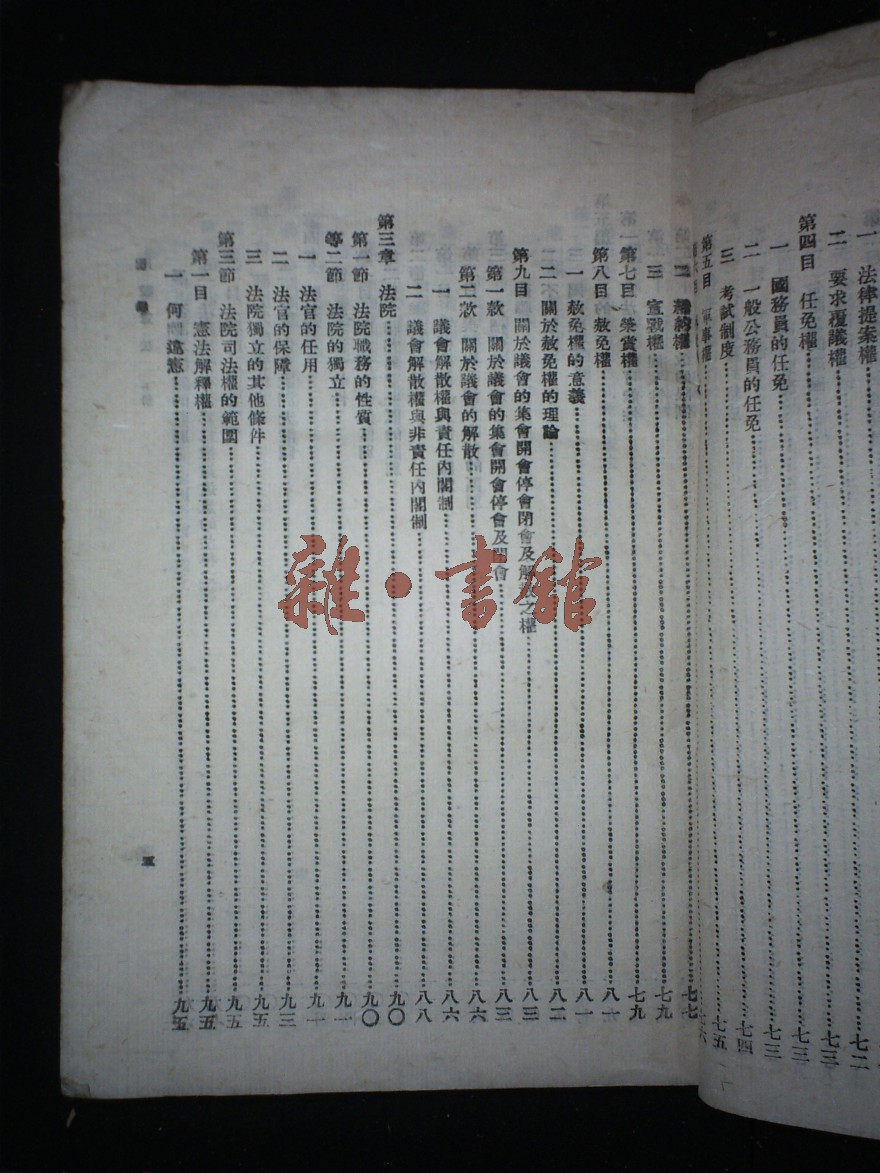 一 法律提案權……七二
二 要求覆議權……七三
第四目 任免權……七三
一 國務員的任免……七三
二 一般公務員的任免……七四
三 考試制度……七五
第五目 軍事權
二 締約權……七七
三 宣戰權……七九
第七目 榮賞權……七九
第八目 赦免權……八一
一 赦免權的意義……八一
二 關於赦免權的理論……八二
第九目 關於議會的集會開會停會閉會及解散之權……八三
第一款 關於議會的集會開會停會及閉會……八三
第二款 關於議會的解散……八六
一 議會解散權與責任內閣制……八六
二 議會解散權與非責任內閣制……八八
第三章 法院……九〇
第一節 法院職務的性質……九〇
第二節 法院的獨立……九一
一 法官的任用……九一
二 法官的保障……九三
三 法院獨立的其他條件……九五
第三節 法院司法權的範圍……九五
第一目 憲法解釋權……九五
一 何謂違憲……九五
五
雜·書館